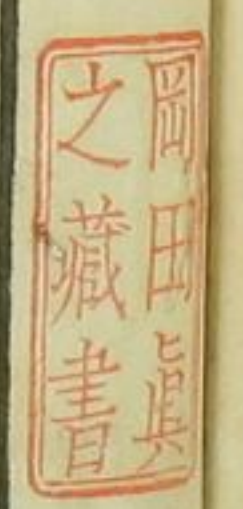 岡田眞
之藏書